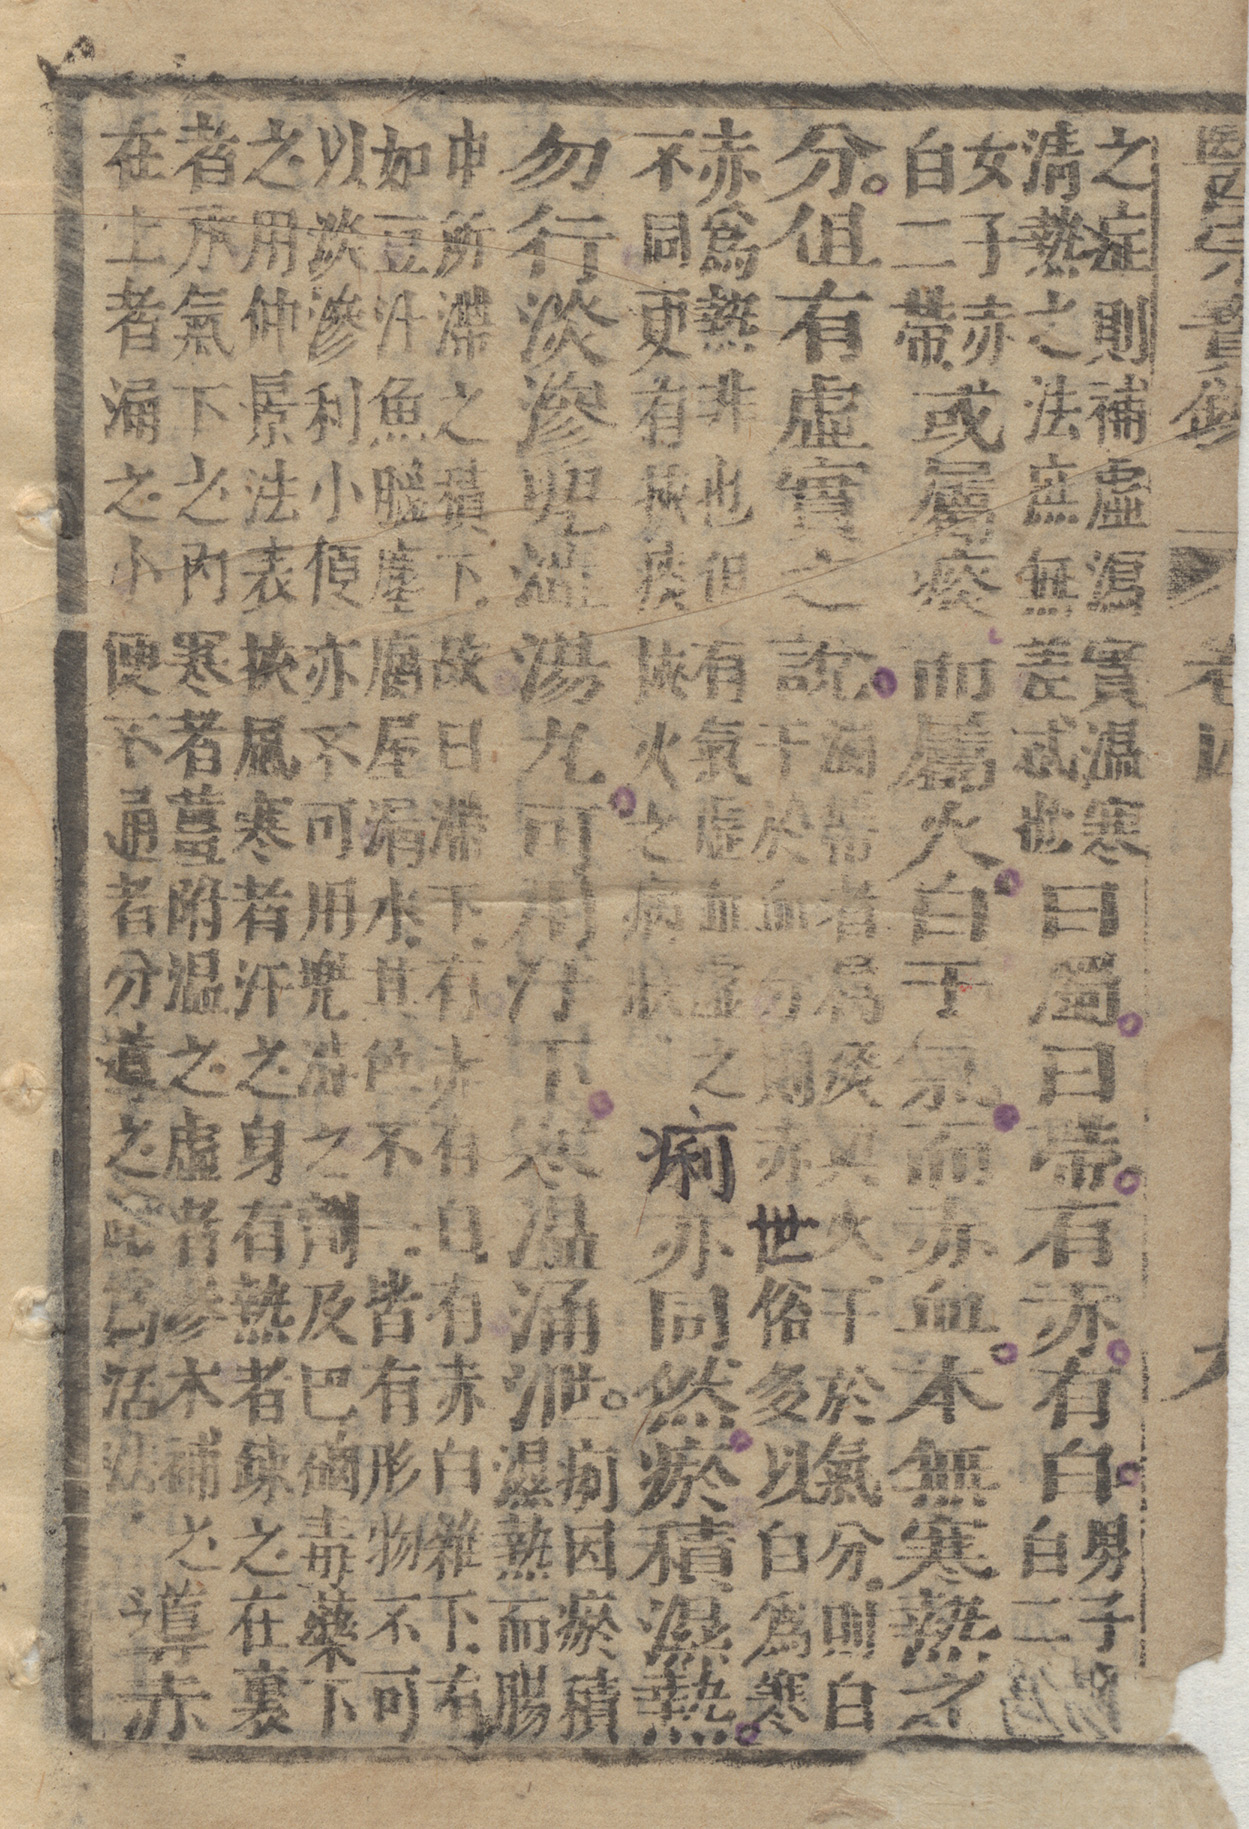 卷四
之症則補虛瀉實溫寒
清熱之法庶無差忒也
曰濁曰帶有赤有白
男子
白二濁
女子赤
白二帶
或屬痰而屬火白干氣而赤血本無寒熱之
分。但有虛實之說
濁帶者屬痰與火干於氣分則白
干於血勿則赤世俗多以白為寒
赤為熱非也但有氣虛血虛之
不同更有挾痰挾火之病狀
痢亦同然瘀積濕熱
勿行淡滲兜濇湯丸可用汗下寒溫涌泄。
痢因瘀積
濕熱而腸
中所滯之積下故曰滯下有赤有白有赤白雜下有
如豆汁魚腦塵腐屋漏水其色不一皆有形物不可
以淡滲利小便亦不可用兜濇之劑及巴硇毒藥下
之用仲景法表挾風寒者汗之身有熱者疎之在裏
者承氣下之內寒者薑附溫之虛者參木補之
在上者涌之小便不通者分導之此為活法
導赤